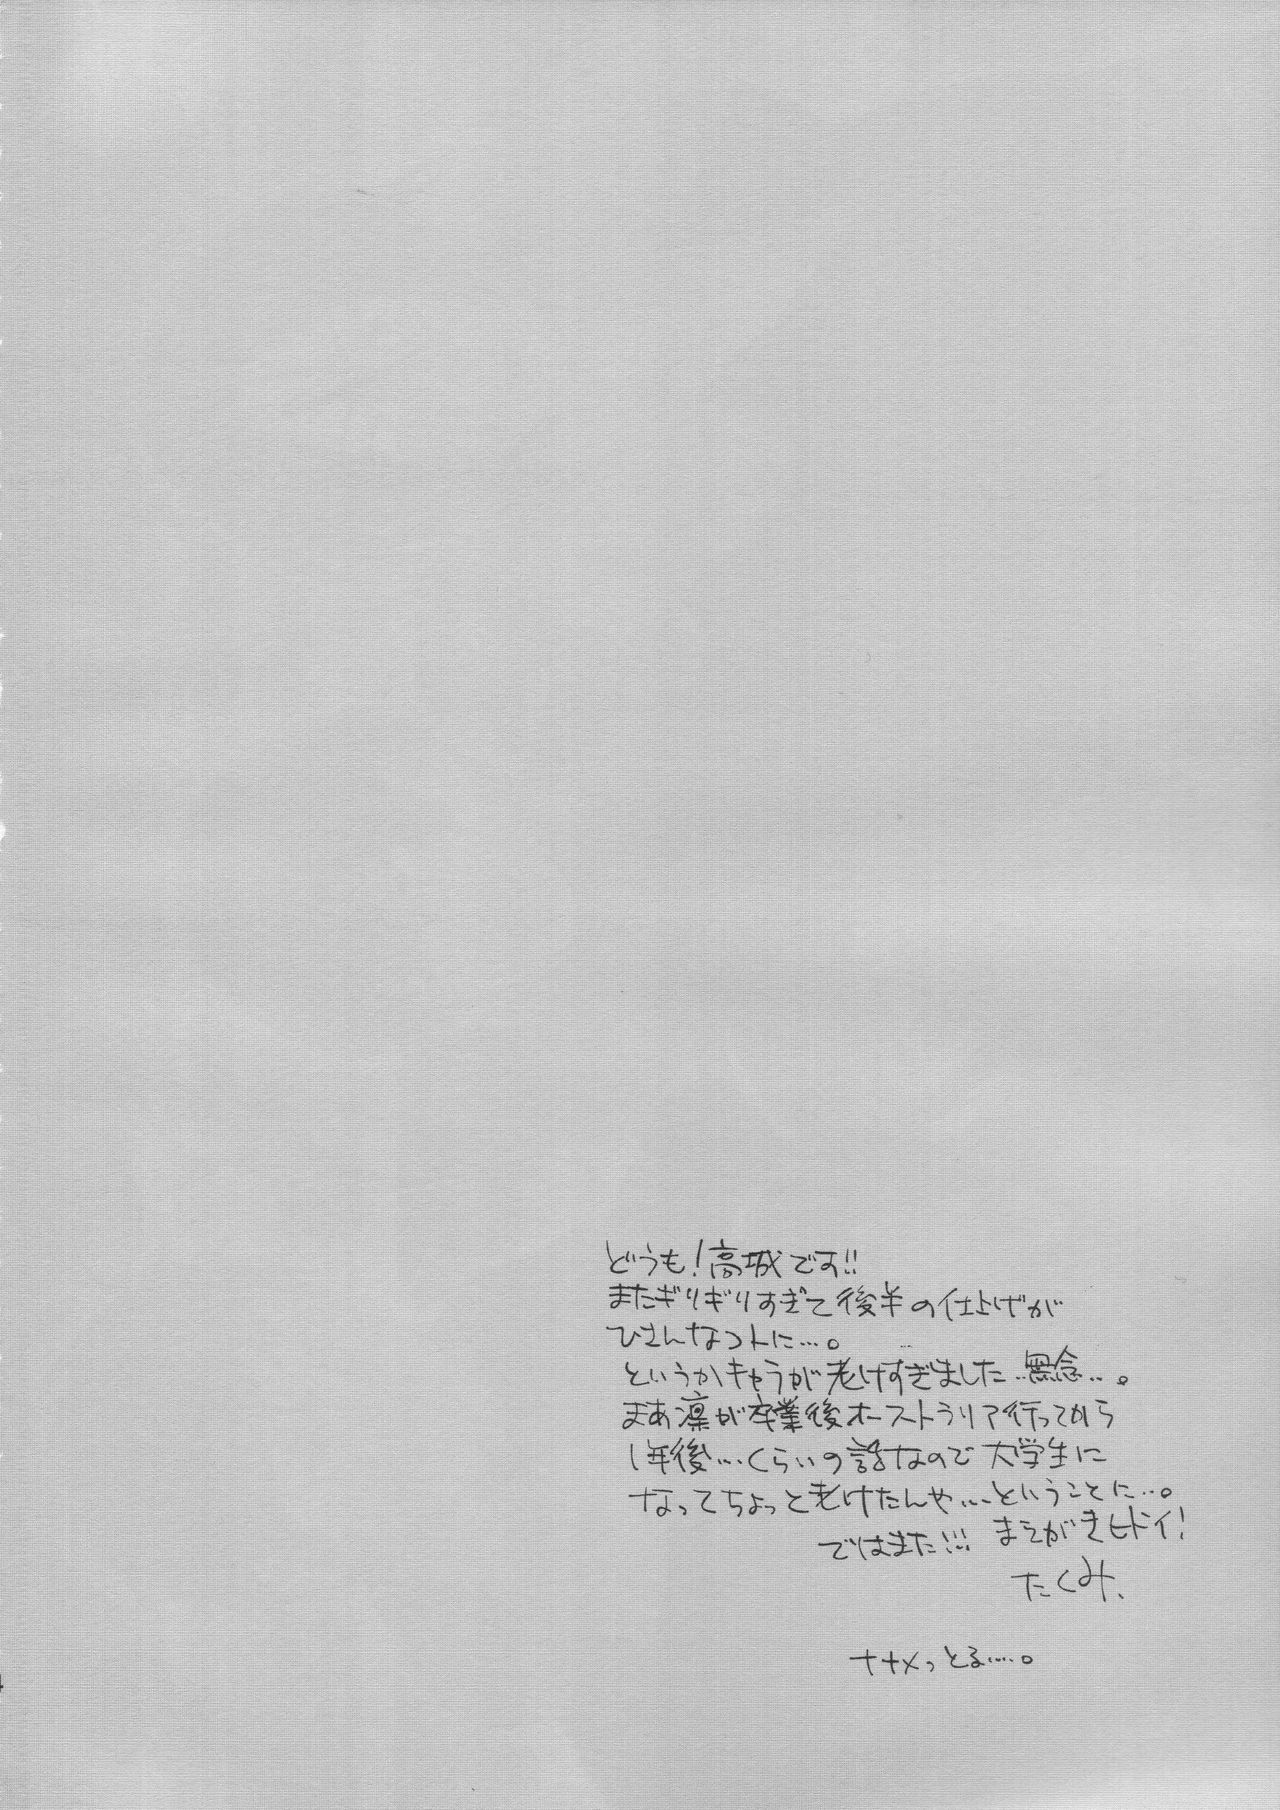 どうも!高城です!!
またギリギリすぎて後半の仕上げが
ひさんなコトに…。
というかキャラが老けすぎました…無念…。
まあ凛が卒業後オーストラリア行ってから
1年後…くらいの話なので大学生に
なってちょっと老けたんや…ということに…。
ではまた!!! まえがきヒドイ!
たくみ、
ナナメっとる…。
4